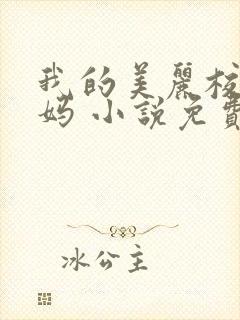 我的美麗校
媽 小說免費
冰公主